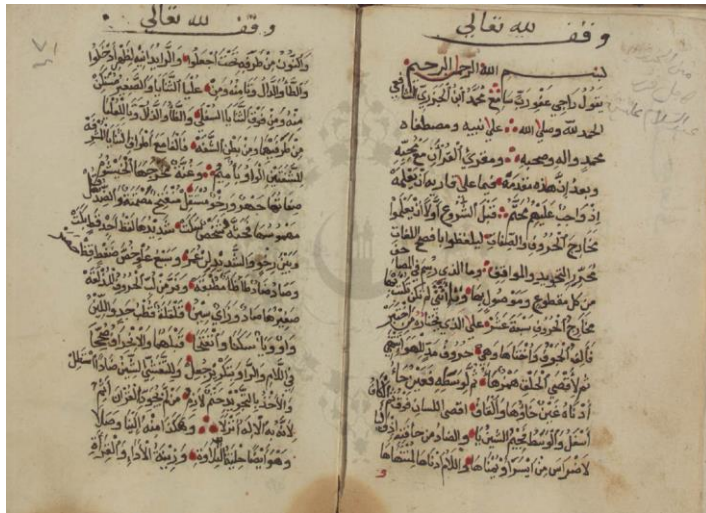 وقف لله تعالى
بسم الله الرحمن الرحيم
يقول راجي عفو رب سامع محمد ابن الجزري الشافعي
الحمد لله وصلى الله على نبيه ومصطفاه
محمد واله وصحبه ومقرئ القرآن مع محبه
وبعد ان هذه مقدمه فيما على قارئه ان يعلمه
إذ واجب عليهم محتم قبل الشروع أولا أن يعلموا
مخارج الحروف والصفات ليلفظوا بافصح اللغات
محرر التجويد والمواقف وما الذي رسم في المصاحف
من كل مقطوع وموصول بها وتا أنثى لم تكن تكتب بها
مخارج الحروف سبعة عشر على الذي يختاره من اختبر
فألف الجوف وأختاها وهي حروف مد للهواء تنتهي
ثم لأقصى الحلق همز هاء ثم لوسطه فعين حاء
أدناه غين خاؤها والقاف اقصى اللسان فوق ثم الكاف
أسفل والوسط فجيم الشين يا والضاد من حافته إذ وليا
لاضراس من ايسر أو يمناها واللام أدناها لمنتهاها
وقف لله تعالى
والنون من طرفه تحت اجعلوا والرا يدانيه لظهر أدخلوا
والطا والدال وتا منه ومن عليا الثنايا والصفير مستكن
منه ومن فوق الثنايا السفلى والظا والذال وثا للعليا
من طرفيهما ومن بطن الشفة فالفا مع اطراف الثنايا المشرفه
للشفتين الواو باء ميم وغنة مخرجها الخيشوم
صفاتها جهر ورخو مستفل منفتح مصمتة والضد قل
مهموسها فحثه شخص سكت شديدها لفظ أجد قط بكت
وبين رخو والشديد لن عمر وسبع علو خص ضغط قظ حصر
وصاد ضاد طا ظا مطبقة وفر من لب الحروف المذلقة
صفيرها صاد وزاي سين قلقلة قطب جد واللين
واو ويا سكنا وانفتحا قبلهما والانحراف صححا
في اللام والرا وبتكرير جعل وللتفشي الشين ضادا استطل
والأخذ بالتجويد حتم لازم من لم يجود القرآن آثم
لأنه به الاله انزلا وهكذا منه الينا وصلا
وهو ايضا حلية التلاوة وزينة الأداء والقراة